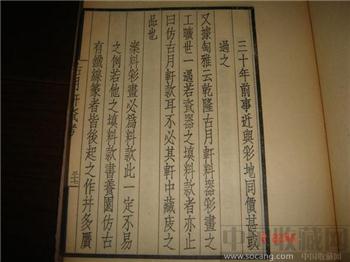 三十年前事近與彩地同價甚或
過之
又據匋雅云乾隆古月軒料器彩畫之
工曠世一遇若瓷器之倣製者亦止
曰仿古月軒款耳不必其軒中藏庋之
品也
案料彩畫必爲料款此一定不易
之例若他之填料款書養園仿古
有鐵線篆者皆後起之作并多贋
古月軒瓷考
中国收藏网
http://www.socang.com